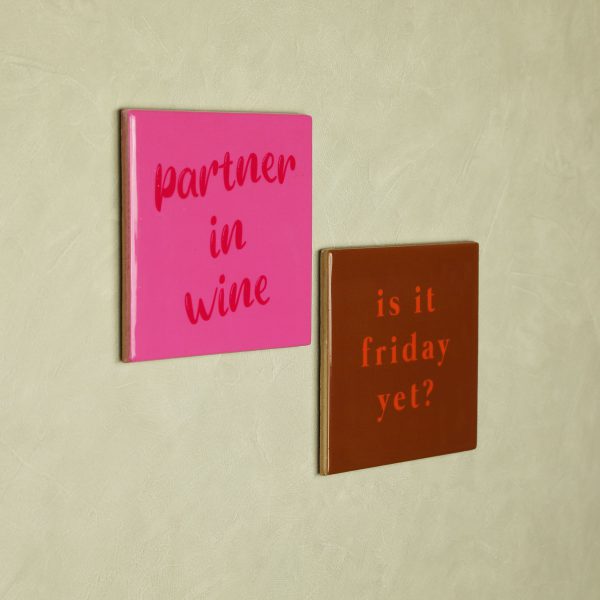 partner
in
wine
is it
friday
yet?